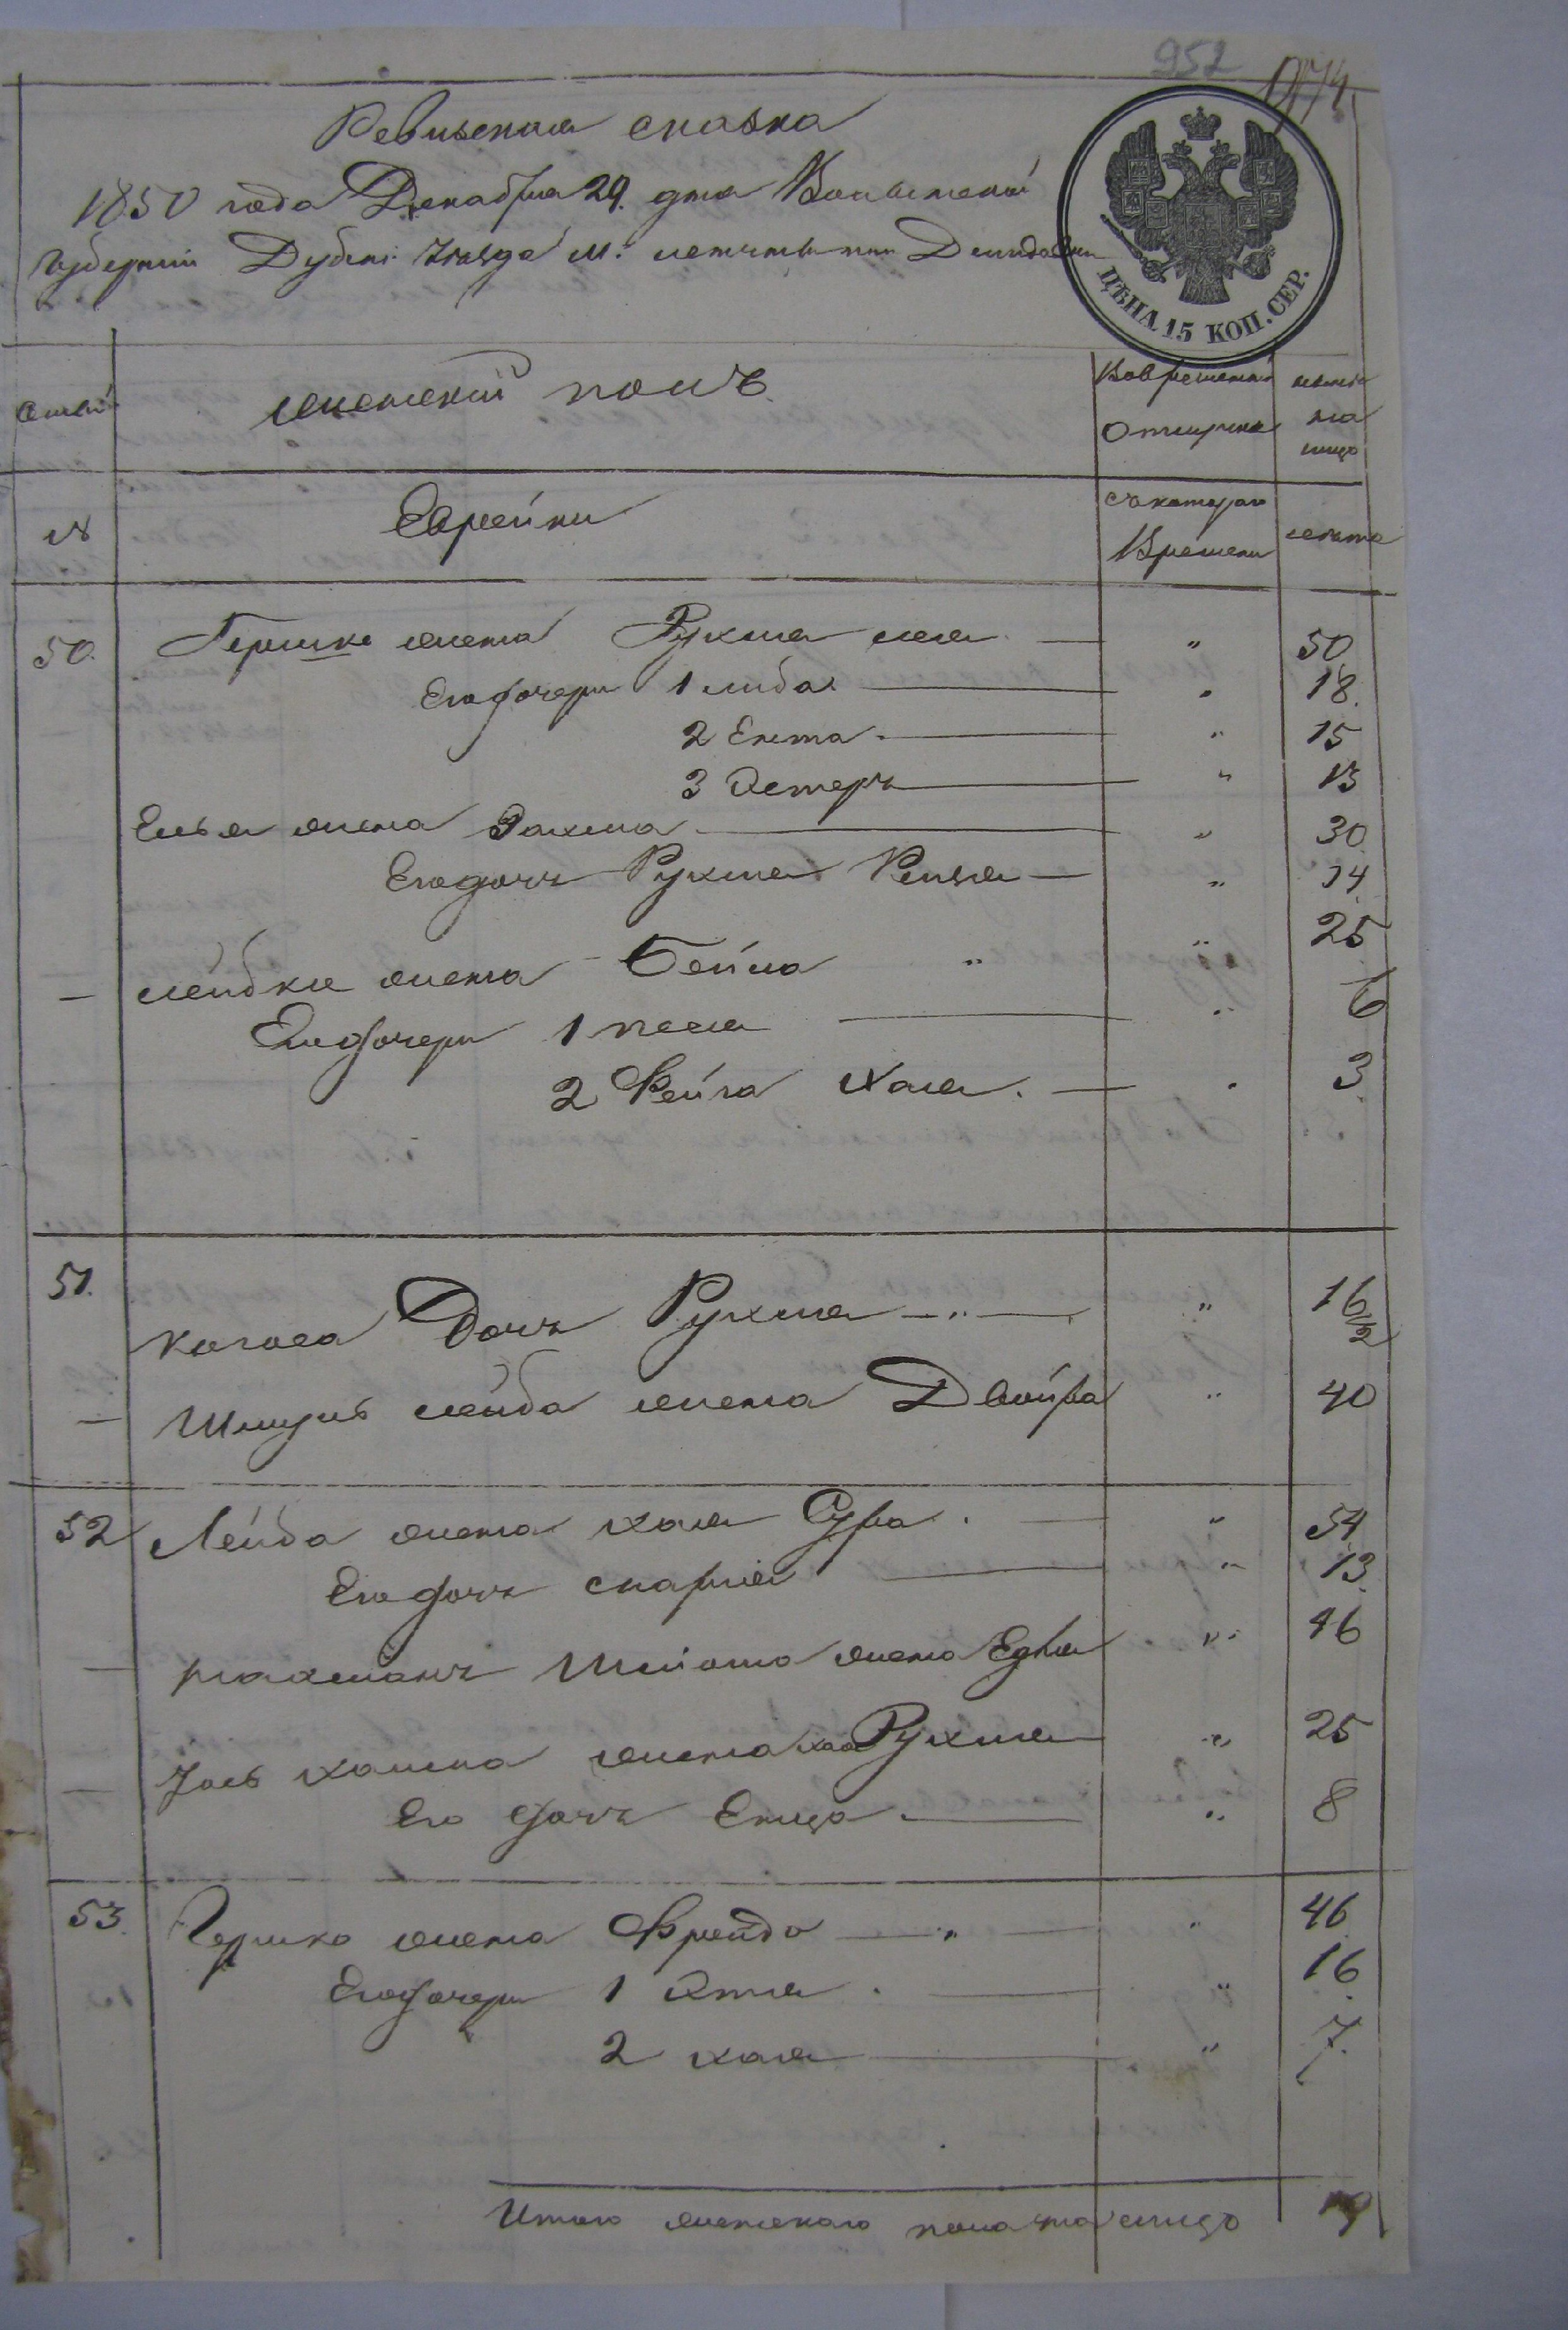 952
Ревизская сказка
1850 года Декабря 29. дня Волынской
Губернии Дубенс: уезда м: местечки Демидовки
ЦѢНА 15 КОП. СЕР.
женский полъ
Вовременной
отлучке
налицо
№
Еврейки
съ котораго
Времени
лета
50. Гершка жена Рухля лея — „ 50
Его дочери 1 либа — „ 18.
2 Ента. — „ 15
3 Эстеръ — „ 13
Елья жена Рахля — „ 30
Его дочь Рухля Рейзя — „ 14
— лейбки жена Бейла „ „ 25
Его дочери 1 песя — „ 6
2 Фейга Хая. — „ 3
51. дочь Рухля — „ — „ 16 1/2
— Шмуль лейба жена Двойра „ 40
52 Лейба жена хая Сура. — „ 54
Его дочь — „ 13.
— рахманъ жена „ 46
— хаима жена хая Рухля „ 25
Его дочь Енца. — „ 8
53. Гершко жена Фрейда — „ — „ 46
Его дочери 1 Этя. — „ 16.
2 хая — „ 7.
Итого женского пола налицо